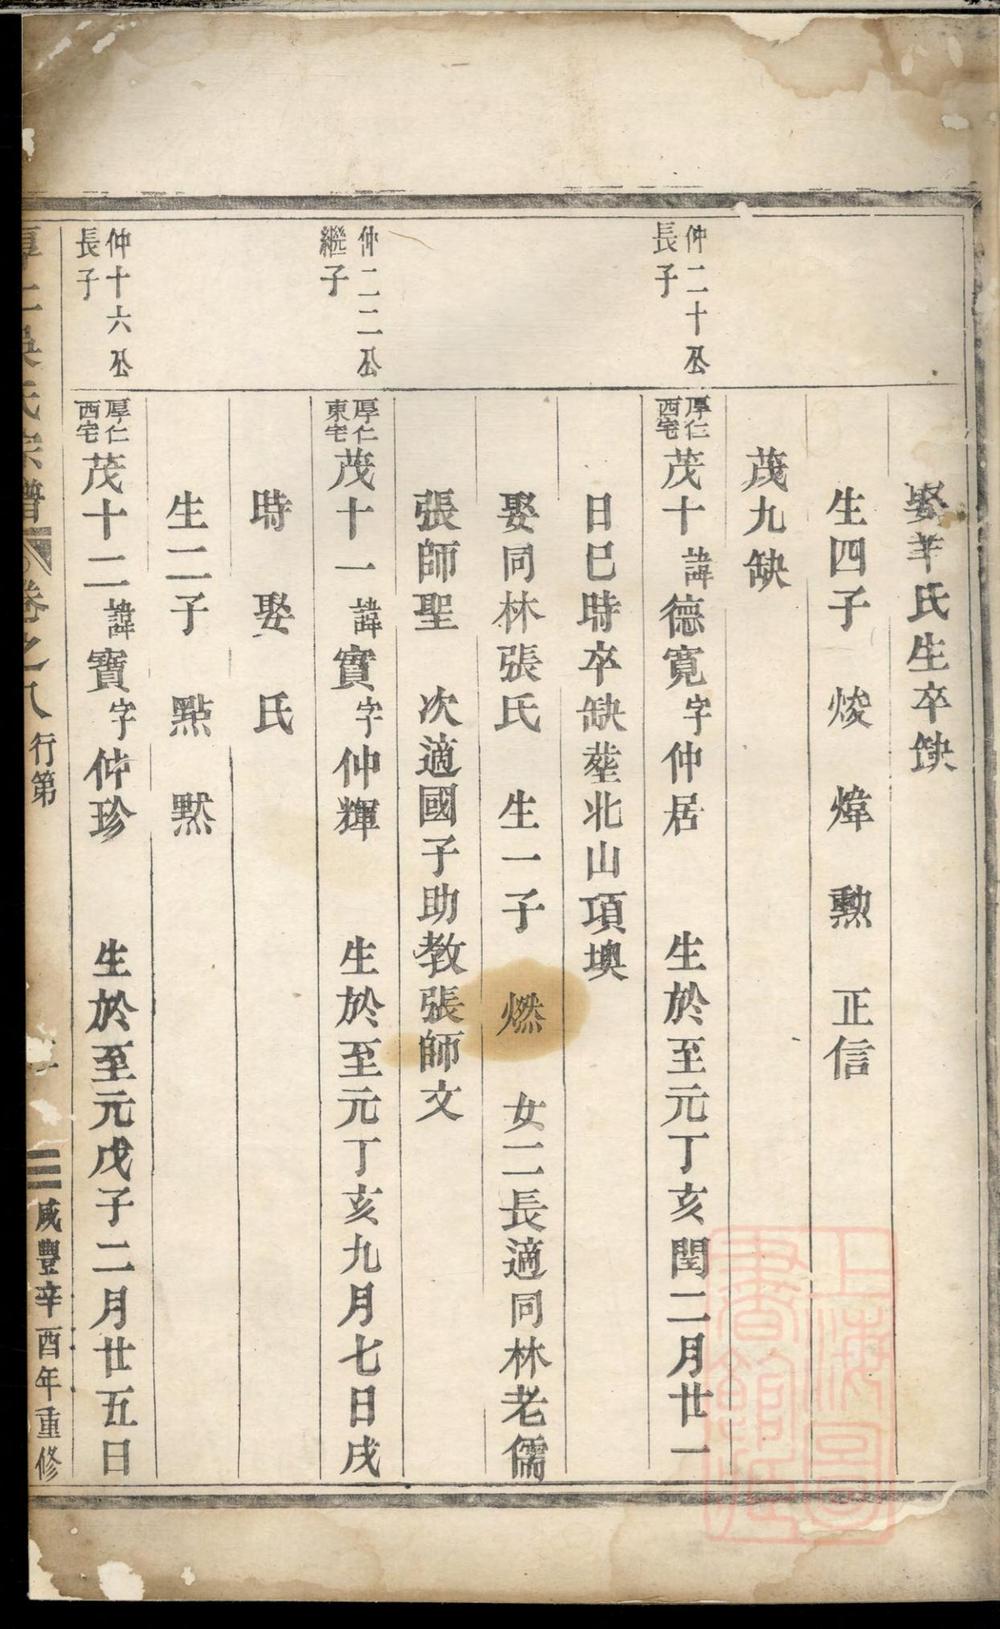 娶羊氏生卒缺
生四子 焌 煒 勲 正信
茂九缺
仲二十公
長子
厚仁西宅茂十諱德寬字仲居 生於至元丁亥閏二月廿一
日巳時卒缺塟北山項墺
娶同林張氏 生一子 燃 女二長適同林老儒
張師聖 次適國子助教張師文
仲二二公
繼子
厚仁東宅茂十一諱實字仲輝 生於至元丁亥九月七日戌
時 娶 氏
生二子 點 默
仲十六公
長子
厚仁西宅茂十二諱寶字仲珍 生於至元戊子二月廿五日
厚仁吳氏宗譜 卷之八 行第 咸豐辛酉年重修
上海圖書館藏